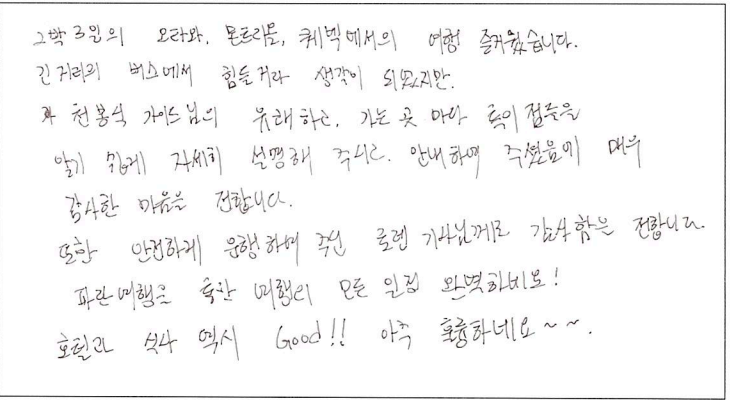 2박3일의 오타와, 몬트리올, 퀘벡에서의 여행 즐거웠습니다.
긴거리의 버스에서 힘들거라 생각이 되었지만.
천봉식 가이드님의 유쾌하고, 가는 곳 마다 특이점들을
알기 쉽게 자세히 설명해 주시고. 안내하여 주셨음에 매우
감사한 마음을 전합니다.
또한 안전하게 운행하여 주신 로렌 기사님께도 감사함을 전합니다.
파란여행을 통한 여행의 모든 일정 완벽하네요!
호텔과 식사 역시 Good!! 아주 훌륭하네요~~.